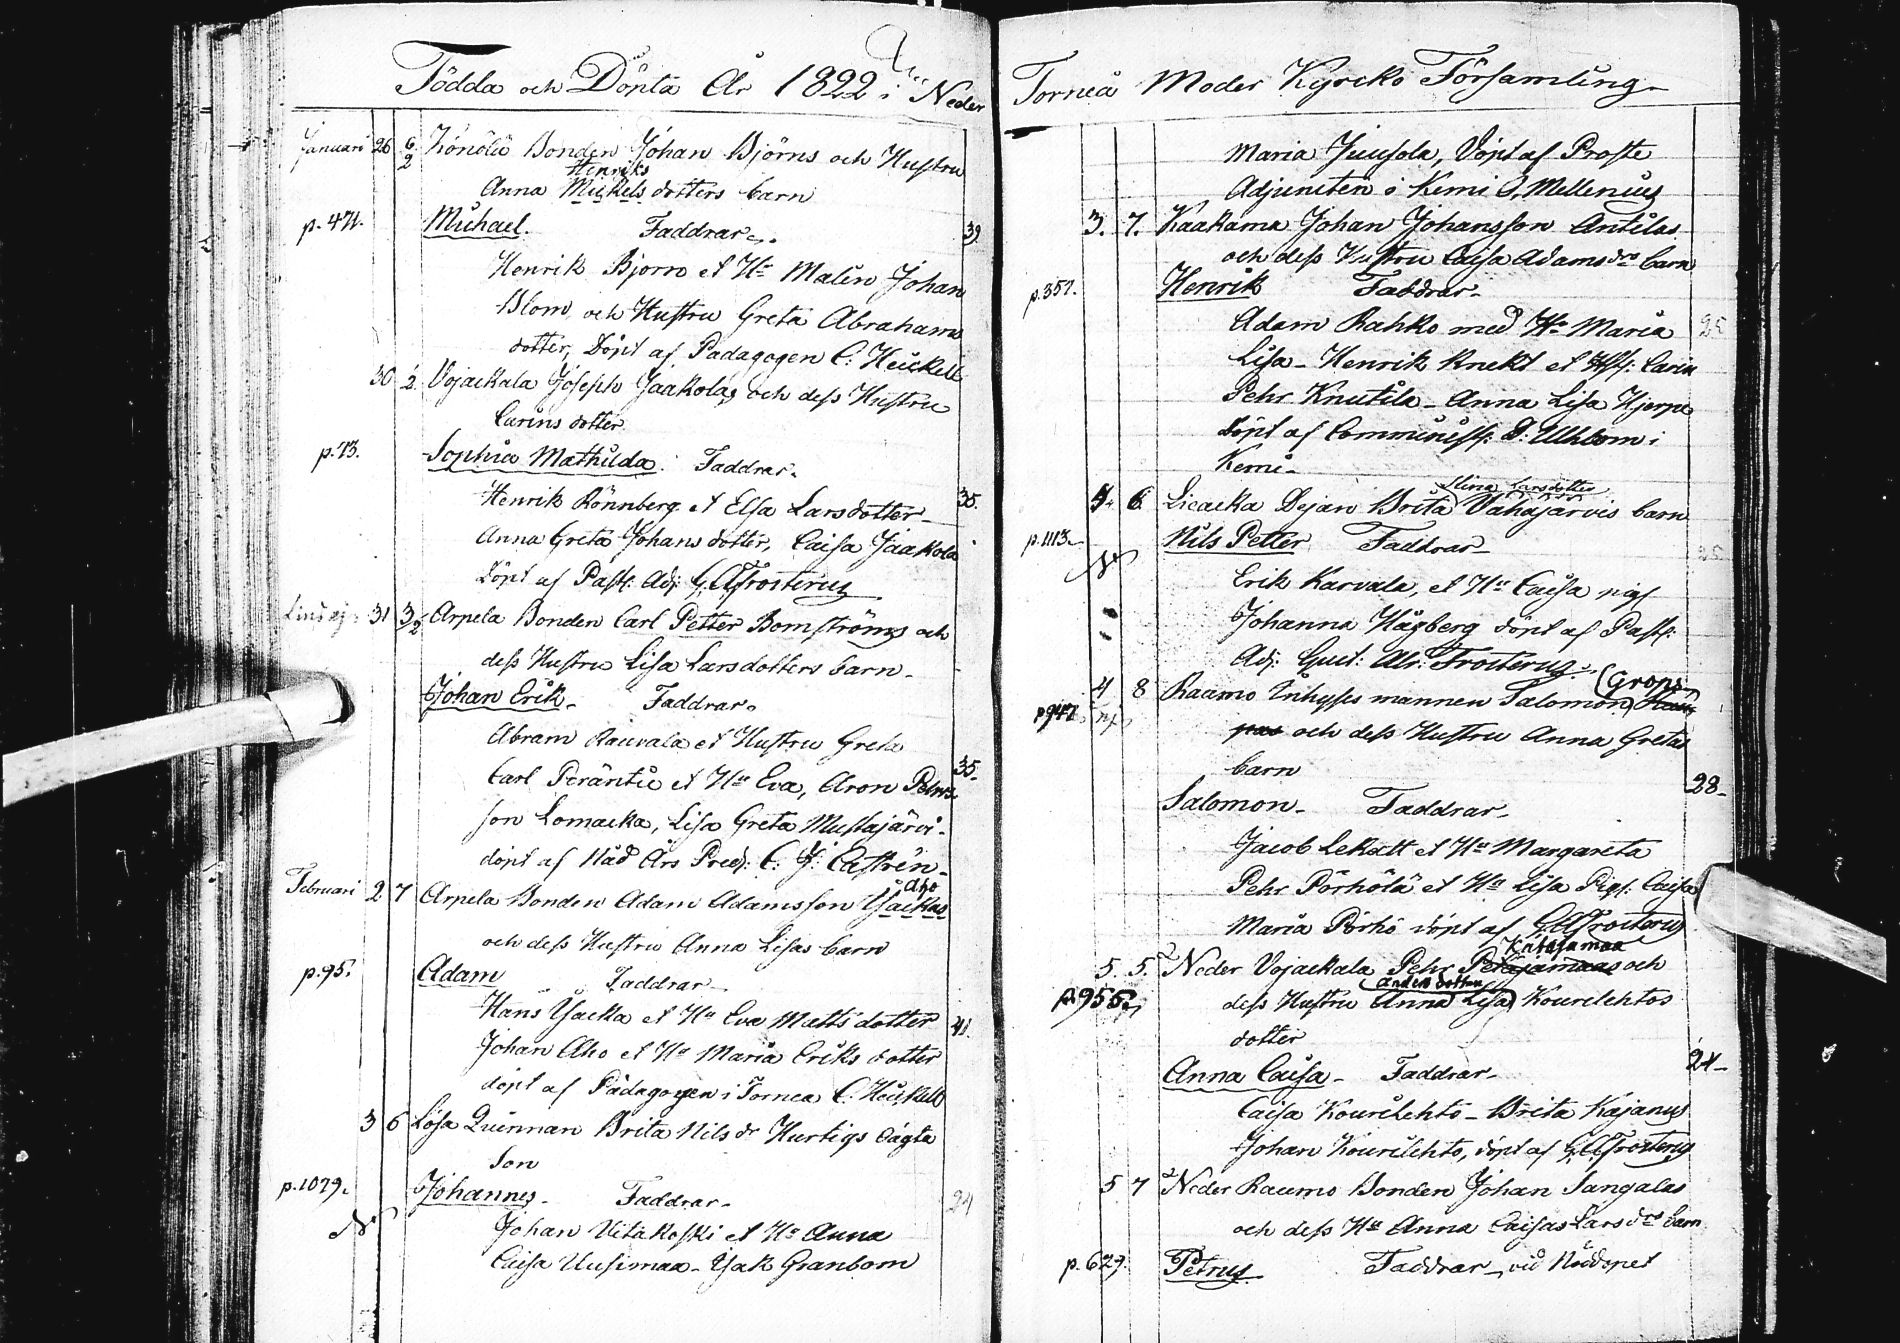 Födda och Döpta År 1822 i Neder
Januari 26 6/2 Könölä Bonden Johan Björns och Hustru
Henriks
Anna Mickels dotters barn
p. 471. Michael. Faddrar. 39
Henrik Björn et Hu Malin Johan
Blom och Hustru Greta Abrahams
dotter, Döpt af Pædagogen C. Heickell
30 2 Vojackala Joseph Jaakolas och dess Hustru
Carins dotter
p. 73. Sophia Mathilda. Faddrar.
Henrik Rönnberg et Elsa Larsdotter 35.
Anna Greta Johans dotter, Caisa Jaakola
döpt af Past: Adj: G. A Frosterus
31 3/2 Arpela Bonden Carl Petter Bomströms och
dess Hustru Lisa Larsdotters barn
Johan Erik. Faddrar.
Abram Rauvala et Hustru Greta
Carl Peräntie et Hu Eva, Aron Pehrs 35.
son Lomacka, Lisa Greta Mustajärvi
döpt af Nåd Års Pred: C. J. Castrén
Aho
Februari 2 7 Arpela Bonden Adam Adamsson Ysackas
och dess Hustru Anna Lisas barn
p. 95. Adam Faddrar
Hans Ysacka et Hu Eva Matts dotter 41.
Johan Aho et Hu Maria Eriks dotter
döpt af Pädagogen i Torneå C. Heickell
3 6 Lösa Quinnan Brita Nils dr Hurtigs oägta
Son
p. 1029. Johannes Faddrar 24
Johan Vitakoski et Hu Anna
Caisa Uusimaa Isak Granbom
Torneå Moder Kyrcko Församling
Maria Juusola, Döpt af Proste
Adjuncten i Kemi O. Mellenius
3. 7. Kaakama Johan Johansson Antilas
och dess Hustru Caisa Adams dr barn
p. 357. Henrik Faddrar 25
Adam Rahko med Hu Maria
Lisa Henrik Knekt et Carin
Pehr Knutila Anna Lisa Hjerpe
döpt af D: Uhlbom i
Kemi
Stina Larsdotter
6 Liedacka Dejan Brita Vähäjärvis barn
p. 1113 Nils Petter Faddrar
Erik Karvala, et Hu Caisa pigs
Johanna Hågberg döpt af Past:
Adj: Gust: Frosterus
(Grops
4 8 Raumo Inhyses mannen Salomon
p 947 och dess Hustru Anna Gretas
barn 28
Salomon Faddrar
Jacob Lekatt et Hu Margareta
Pehr Pörhölä et Hu Lisa Pig: Caisa
Maria Pörhö döpt af G A Frosterus
Katajamaa
5. 5. Neder Vojackala Pehr Petäjämaas och
Anders dotter
p. 955. dess Hustru Anna Lisa Kourilehtos
dotter
Anna Caisa Faddrar 24
Caisa Kourilehto Brita Kajanus
Johan Kourilehto, döpt af G A Frosterus
5 7 Neder Raumo Bonden Johan Sangalas
och dess Hu Anna Caisas Lars drs barn
p. 629. Petrus Faddrar vid Nöddopet